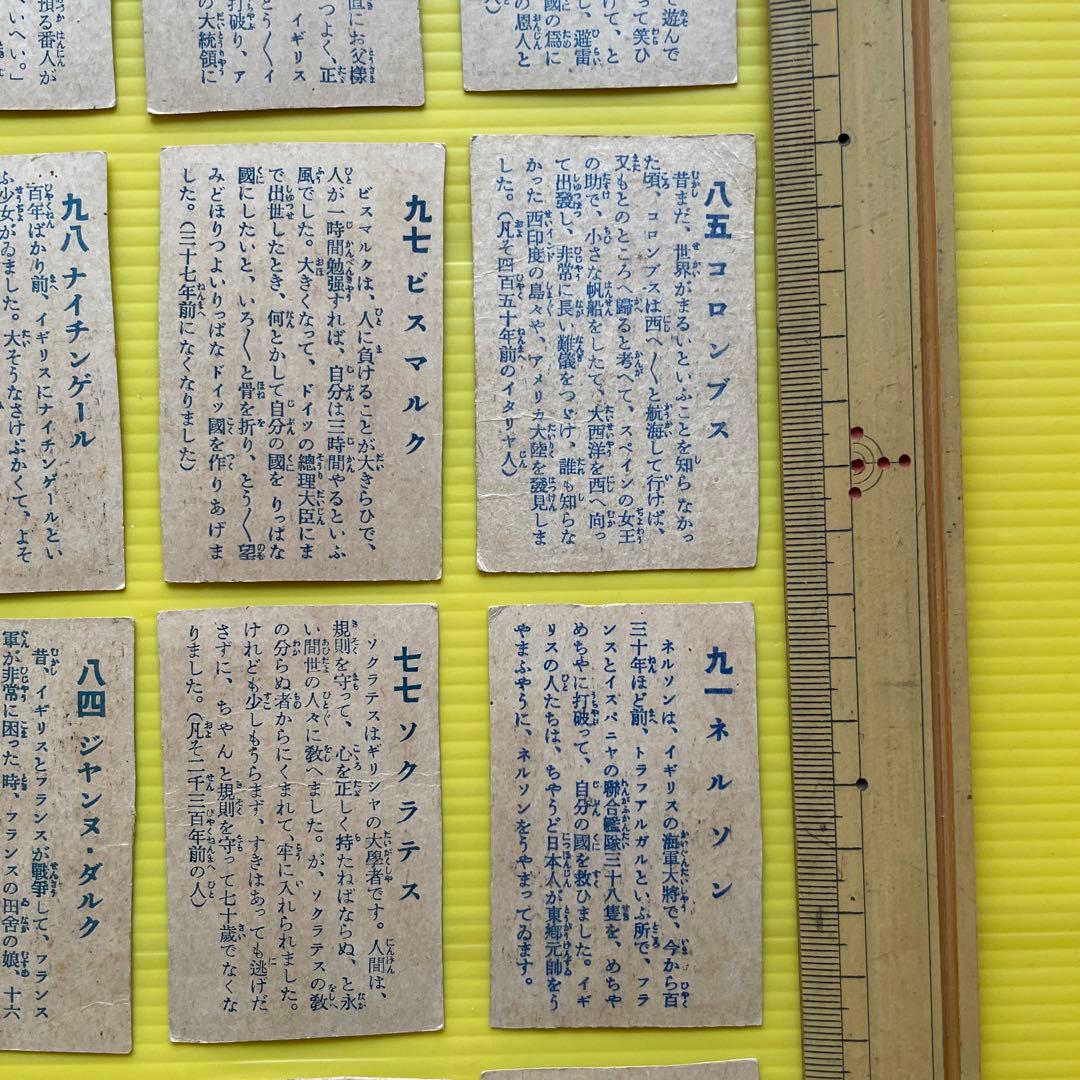 て遊んで
って笑ひ
けて、と
し、避雷
國の爲に
の恩人と
直にお父様
つよく、正
とう〳〵イ
イギリス
打破り、ア
の大統領に
預る番人が
いへい。」
八五 コロンブス
昔まだ、世界がまるいといふことを知らなかっ
た頃、コロンブスは西へ〳〵と航海して行けば、
又もとのところへ歸ると考へて、スペインの女王
の助で、小さな帆船をしたて、大西洋を西へ向っ
て出發し、非常に長い難儀をつゞけ、誰も知らな
かった西印度の島々や、アメリカ大陸を發見しま
した。(凡そ四百五十年前のイタリヤ人)
九七 ビスマルク
ビスマルクは、人に負けることが大きらひで、
人が一時間勉强すれば、自分は三時間やるといふ
風でした。大きくなって、ドイツの總理大臣にま
で出世したとき、何とかして自分の國をりっぱな
國にしたいと、いろ〳〵と骨を折り、とう〳〵望
みどほりつよいりっぱなドイツ國を作りあげま
した。(三十七年前になくなりました)
九八 ナイチンゲール
百年ばかり前、イギリスにナイチンゲールとい
ふ少女がゐました。大そうなさけぶかくて、よそ
九一 ネルソン
ネルソンは、イギリスの海軍大將で、今から百
三十年ほど前、トラフアルガルといふ所で、フラ
ンスとイスパニヤの聯合艦隊三十八隻を、めちや
めちやに打破って、自分の國を救ひました。イギ
リスの人たちは、ちやうど日本人が東鄕元帥をう
やまふやうに、ネルソンをうやまってゐます。
七七 ソクラテス
ソクラテスはギリシャの大學者です。人間は、
規則を守って、心を正しく持たねばならぬ、と永
い間世の人々に敎へました。が、ソクラテスの敎
の分らぬ者からにくまれて、牢に入れられました。
けれども少しもうらまず、すきはあっても逃げだ
さずに、ちゃんと規則を守って七十歲でなくな
りました。(凡そ二千三百年前の人)
八四 ジヤンヌ・ダルク
昔、イギリスとフランスが戰爭して、フランス
軍が非常に困った時、フランスの田舍の娘、十六